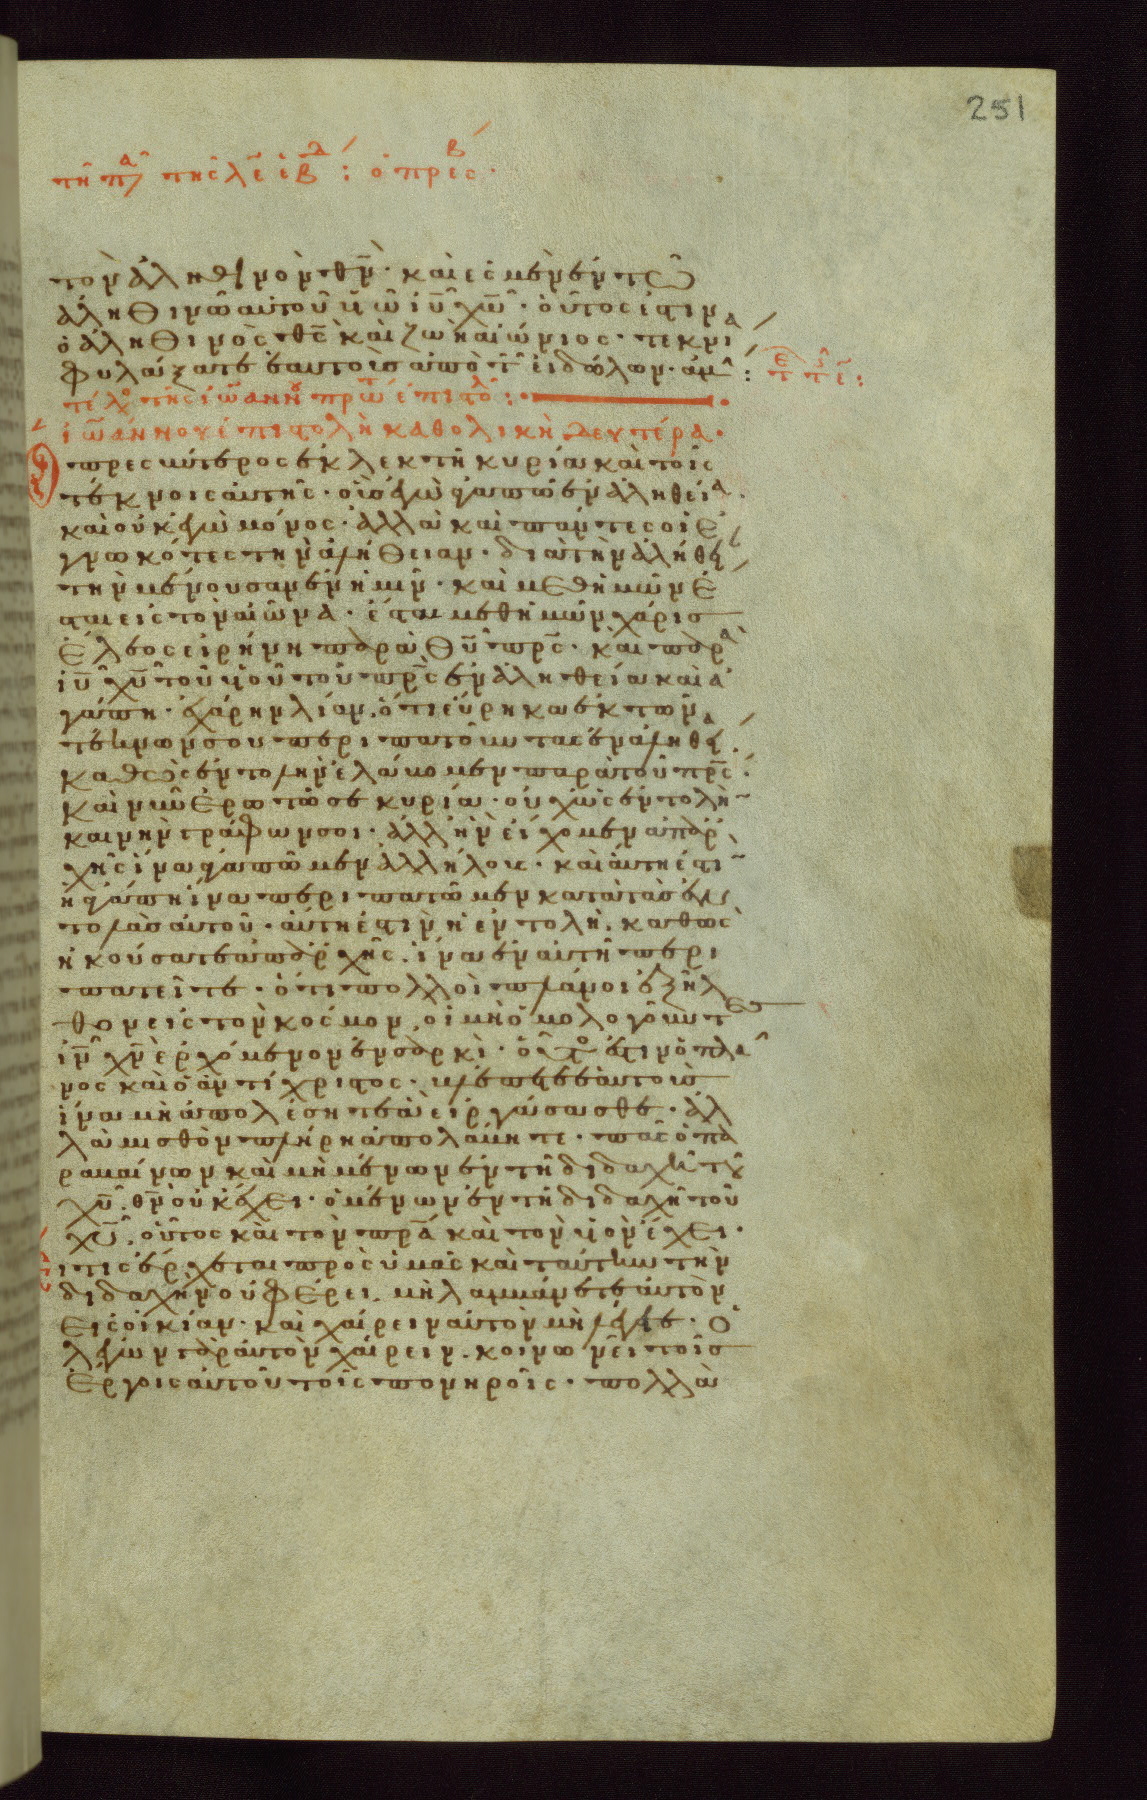 251
τῆ π̑ᾳ τῆς λε̄ ἑβδ́ : ὁ πρεσβ́ ·
τὸν ἀληθινὸν θν̄ · καὶ ἐσμὲν ἐν τῶ
ἀληθινῶ αὐτοῦ υἱῶ ιῡ χω̄ · οὗτος ἐστιν
ὁ ἀληθινὸς θς̄ καὶ ζωὴ αἰώνιος · τεκνία
φυλάξατε ἑαυτοὺς ἀπὸ τ̑ εἰδώλων · ἀμ̑ :
τέλο τῆς ἰωάννου πρώτ ἐπιστολ :
ἰωάννου ἐπιστολὴ καθολικὴ δευτέρα ·
Ὁ πρεσβύτερος ἐκλεκτῆ κυρία καὶ τοῖς
τέκνοις αὐτῆς · οὓς ἐγὼ ἀγαπῶ ἐν ἀληθεία ·
καὶ οὐκ ἐγὼ μόνος · ἀλλὰ καὶ πάντες οἱ ἐ
γνωκότες τὴν ἀλήθειαν · διὰ τὴν ἀλήθει
τὴν μένουσαν ἐν ἡμῖν · καὶ μεθ ἡμῶν ἔ
σται εἰς τὸν αἰῶνα · ἔσται μεθ ἡμῶν χάρις
ἔλεος εἰρήνη παρὰ θῡ πρς̄ · καὶ παρὰ
ιῡ χῡ τοῦ υἱοῦ τοῦ πρς̄ ἐν ἀληθεία καὶ ἀ
γάπη · ἐχάρην λίαν · ὅτι εὕρηκα ἐκ τῶν
τέκνων σου περιπατοῦντας ἐν ἀληθεία ·
καθὼς ἐντολὴν ἐλάβομεν παρὰ τοῦ πρς̄ ·
καὶ νῦν ἐρωτῶ σε κυρία · οὐχ ὡς ἐντολὴ
καινὴν γράφων σοι · ἀλλ ἣν εἴχομεν ἀπαρ
χῆς ἵνα ἀγαπῶμεν ἀλλήλους · καὶ αὕτη ἐστὶ
ἡ ἀγάπη ἵνα περιπατῶμεν κατὰ τὰς ἐν
τολὰς αὐτοῦ · αὕτη ἐστὶν ἡ ἐντολὴ · καθὼς
ἠκούσατε ἀπαρχῆς · ἵνα ἐν αὐτῆ περι
πατεῖτε · ὅτι πολλοὶ πλάνοι ἐξῆλ
θον εἰς τὸν κόσμον · οἱ μὴ ὁμολογοῦντες
ιν̄ χν̄ ἐρχόμενον ἐν σαρκὶ · οὗτο ἐστιν ὁ πλά
νος καὶ ὁ ἀντίχριστος · βλέπετε ἑαυτοὺς
ἵνα μὴ ἀπολέσητε ἃ εἰργάσασθε · ἀλ
λὰ μισθὸν πλήρη ἀπολάβητε · πᾶς ὁ πα
ραβαίνων καὶ μὴ μένων ἐν τῆ διδαχῆ τοῦ
χῡ · θν̄ οὐκ ἔχει · ὁ μένων ἐν τῆ διδαχῆ τοῦ
χῡ · οὗτος καὶ τὸν πρᾱ καὶ τὸν υἱὸν ἔχει ·
Εἴ τις ἔρχεται πρὸς ὑμᾶς καὶ ταύτην τὴν
διδαχὴν οὐ φέρει · μὴ λαμβάνετε αὐτὸν
εἰς οἰκίαν · καὶ χαίρειν αὐτὸν μὴ λέγετε · ὁ
λέγων γὰρ αὐτὸν χαίρειν · κοινωνεῖ τοῖς
ἔργοις αὐτοῦ τοῖς πονηροῖς · πολλὰ